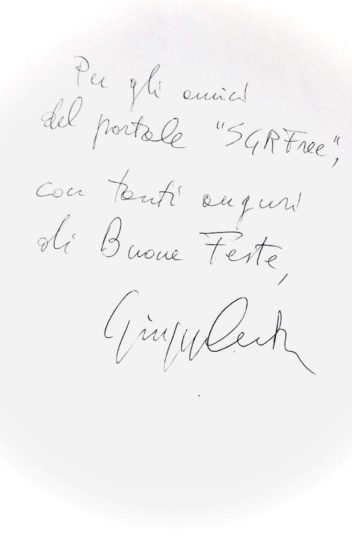 Per gli amici
del portale "SGRFree",
con tanti auguri
di Buone Feste,